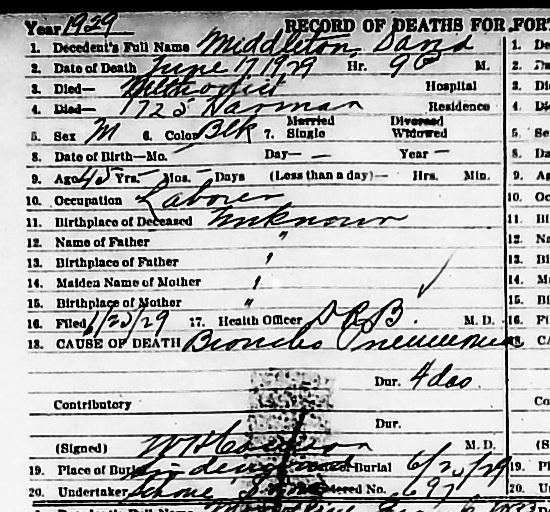 Year 1929 RECORD OF DEATHS FOR FORT
1. Decedent's Full Name Middleton, David
2. Date of Death June 17 1929 Hr. 9 P M.
3. Died— Methodist Hospital
4. Died— 1725 Harman Residence
5. Sex M 6. Color Blk 7. Married Single Divorced Widowed
8. Date of Birth—Mo. Day— — Year —
9. Age 45 Yrs. — Mos. — Days (Less than a day)— Hrs. Min.
10. Occupation Laborer
11. Birthplace of Deceased Unknown
12. Name of Father "
13. Birthplace of Father "
14. Maiden Name of Mother "
15. Birthplace of Mother "
16. Filed 6/25/29 17. Health Officer D R B. M. D.
18. CAUSE OF DEATH Broncho Pneumonia
Dur. 4 das
Contributory
Dur.
(Signed) M. D.
19. Place of Burial of Burial 6/20/29
20. Undertaker No. 697
1. De
2. Da
3. Di
4. Di
5. Se
8. Da
9. Ag
10. Oc
11. Bi
12. Na
13. Bi
14. Ma
15. Bi
16. Fi
18. C
Co
(S
19. Pl
20. Un